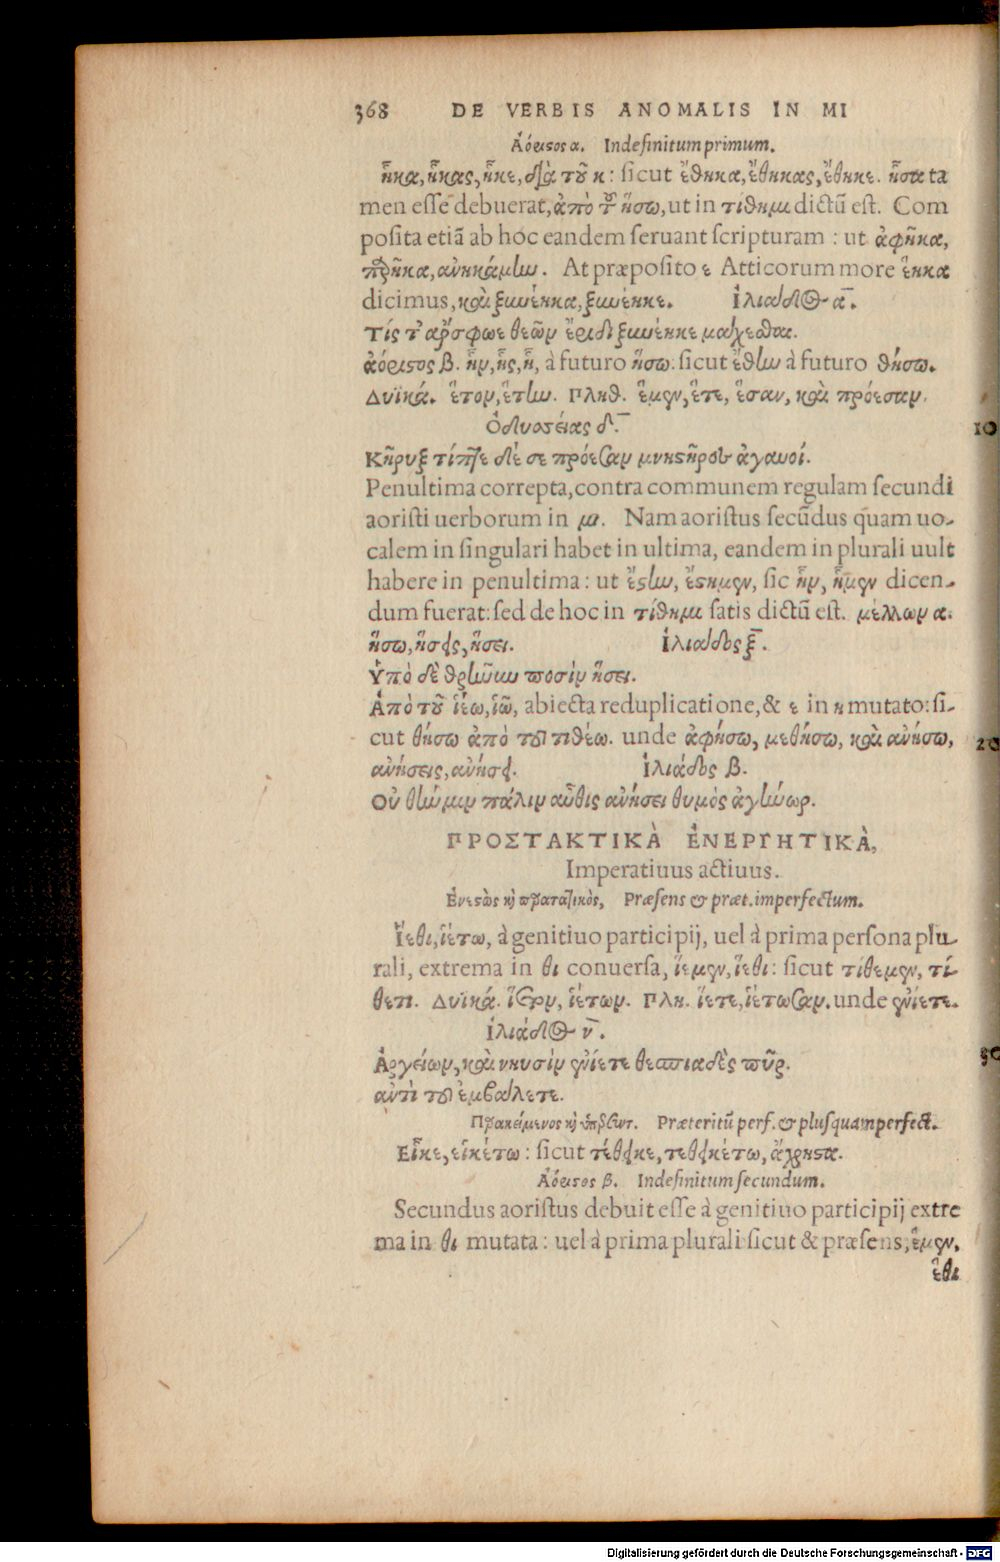 368 DE VERBIS ANOMALIS IN MI
Ἀόριστος α. Indefinitum primum.
ἧκα, ἧκας, ἧκε, διὰ τοῦ κ: sicut ἔθηκα, ἔθηκας, ἔθηκε. ἧσα ta
men esse debuerat, ἀπὸ τοῦ ἥσω, ut in τίθημι dictū est. Com
posita etiā ab hoc eandem seruant scripturam: ut ἀφῆκα,
προῆκα, ἀνηκάμην. At præposito ε Atticorum more ἕηκα
dicimus, καὶ ξυνέηκα, ξυνέηκε. Ἰλιάδος α̅.
Τίς τ' ἄρ σφωε θεῶν ἔριδι ξυνέηκε μάχεσθαι.
ἀόριστος β. ἧν, ἧς, ἧ, à futuro ἥσω. sicut ἔθην à futuro θήσω.
Δυϊκά. ἕτον, ἕτην. Πληθ. ἕμεν, ἕτε, ἕσαν, καὶ πρόεσαν.
Ὀδυσσείας δ̅.
Κῆρυξ τίπτε δέ σε πρόεσαν μνηστῆρες ἀγαυοί.
Penultima correpta, contra communem regulam secundi
aoristi uerborum in μι. Nam aoristus secūdus quam uo-
calem in singulari habet in ultima, eandem in plurali uult
habere in penultima: ut ἔστην, ἔστημεν, sic ἧν, ἧμεν dicen-
dum fuerat: sed de hoc in τίθημι satis dictū est. μέλλων α.
ἥσω, ἥσεις, ἥσει. Ἰλιάδος ξ̅.
Ὑπὸ δὲ θρῆνυν ποσὶν ἥσει.
Ἀπὸ τοῦ ἱέω, ἱῶ, abiecta reduplicatione, & ε in η mutato: si-
cut θήσω ἀπὸ τοῦ τιθέω. unde ἀφήσω, μεθήσω, καὶ ἀνήσω,
ἀνήσεις, ἀνήσει. Ἰλιάδος β.
Οὐ θήν μιν πάλιν αὖθις ἀνήσει θυμὸς ἀγήνωρ.
ΠΡΟΣΤΑΚΤΙΚᾺ ἘΝΕΡΓΗΤΙΚᾺ,
Imperatiuus actiuus.
Ἐνεστὼς καὶ παρατατικὸς, Præsens & præt. imperfectum.
Ἵεθι, ἱέτω, à genitiuo participij, uel à prima persona plu-
rali, extrema in θι conuersa, ἵεμεν, ἵεθι: sicut τίθεμεν, τί-
θετι. Δυϊκά. ἵετον, ἱέτων. Πλη. ἵετε, ἱέτωσαν. unde ἐνίετε.
Ἰλιάδος ν̅.
Ἀργείων, καὶ νηυσὶν ἐνίετε θεσπιδαὲς πῦρ.
ἀντὶ τοῦ ἐμβάλετε.
Παρακείμενος καὶ ὑπερσυντ. Præteritū perf. & plusquamperfect.
Εἷκε, εἱκέτω: sicut τέθεικε, τεθεικέτω, ἄχρηστα.
Ἀόριστος β. Indefinitum secundum.
Secundus aoristus debuit esse à genitiuo participij extre
ma in θι mutata: uel à prima plurali sicut & præsens, ἕμεν,
ἕθι
10
20
30
Digitalisierung gefördert durch die Deutsche Forschungsgemeinschaft - DFG